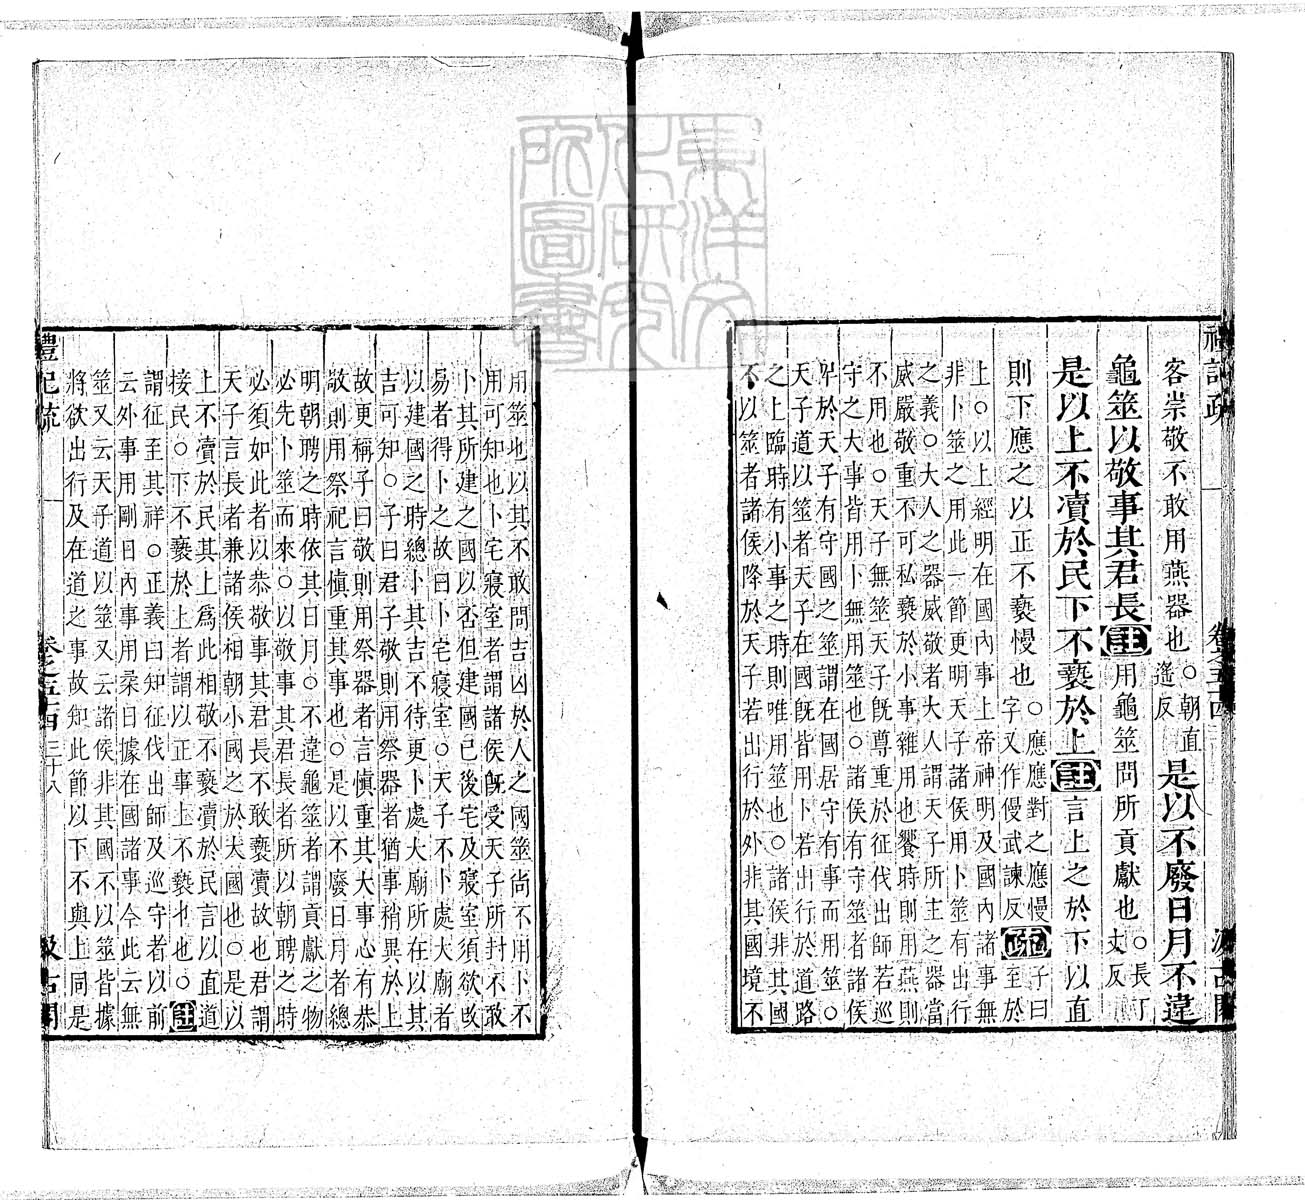 禮記疏　卷之五十四　汲古閣
客崇敬不敢用燕器也○朝直遙反是以不廢日月不違
龜筮以敬事其君長註用龜筮問所貢獻也○長丁丈反
是以上不瀆於民下不褻於上註言上之於下以直
則下應之以正不褻慢也○應應對之應慢字又作僈武諫反疏子曰至於
上○以上經明在國內事上帝神明及國內諸事無
非卜筮之用此一節更明天子諸侯用卜筮有出行
之義○大人之器威敬者大人謂天子所主之器當
威嚴敬重不可私褻於小事雜用也饗時則用燕則
不用也○天子無筮天子既尊重於征伐出師若巡
守之大事皆用卜無用筮也○諸侯有守筮者諸侯
卑於天子有守國之筮謂在國居守有事而用筮○
天子道以筮者天子在國既皆用卜若出行於道路
之上臨時有小事之時則唯用筮也○諸侯非其國
不以筮者諸侯降於天子若出行於外非其國境不
用筮也以其不敢問吉凶於人之國筮尚不用卜不
用可知也卜宅寢室者謂諸侯既受天子所封不敢
卜其所建之國以否但建國已後宅及寢室須欲改
易者得卜之故曰卜宅寢室○天子不卜處大廟者
以建國之時總卜其吉不待更卜處大廟所在以其
吉可知○子曰君子敬則用祭器者猶事稍異於上
故更稱子曰敬則用祭器者言慎重其大事心有恭
敬則用祭祀言慎重其事也○是以不廢日月者總
明朝聘之時依其日月○不違龜筮者謂貢獻之物
必先卜筮而來○以敬事其君長者所以朝聘之時
必須如此者以恭敬事其君長不敢褻瀆故也君謂
天子言長者兼諸侯相朝小國之於大國也○是以
上不瀆於民其上爲此相敬不褻瀆於民言以直道
接民○下不褻於上者謂以正事上不褻也○註
謂征至其祥○正義曰知征伐出師及巡守者以前
云外事用剛日內事用柔日據在國諸事今此云無
筮又云天子道以筮又云諸侯非其國不以筮皆據
將欲出行及在道之事故知此節以下不與上同是
禮記疏　卷之五十四　三十八　汲古閣
東洋文化研究所圖書